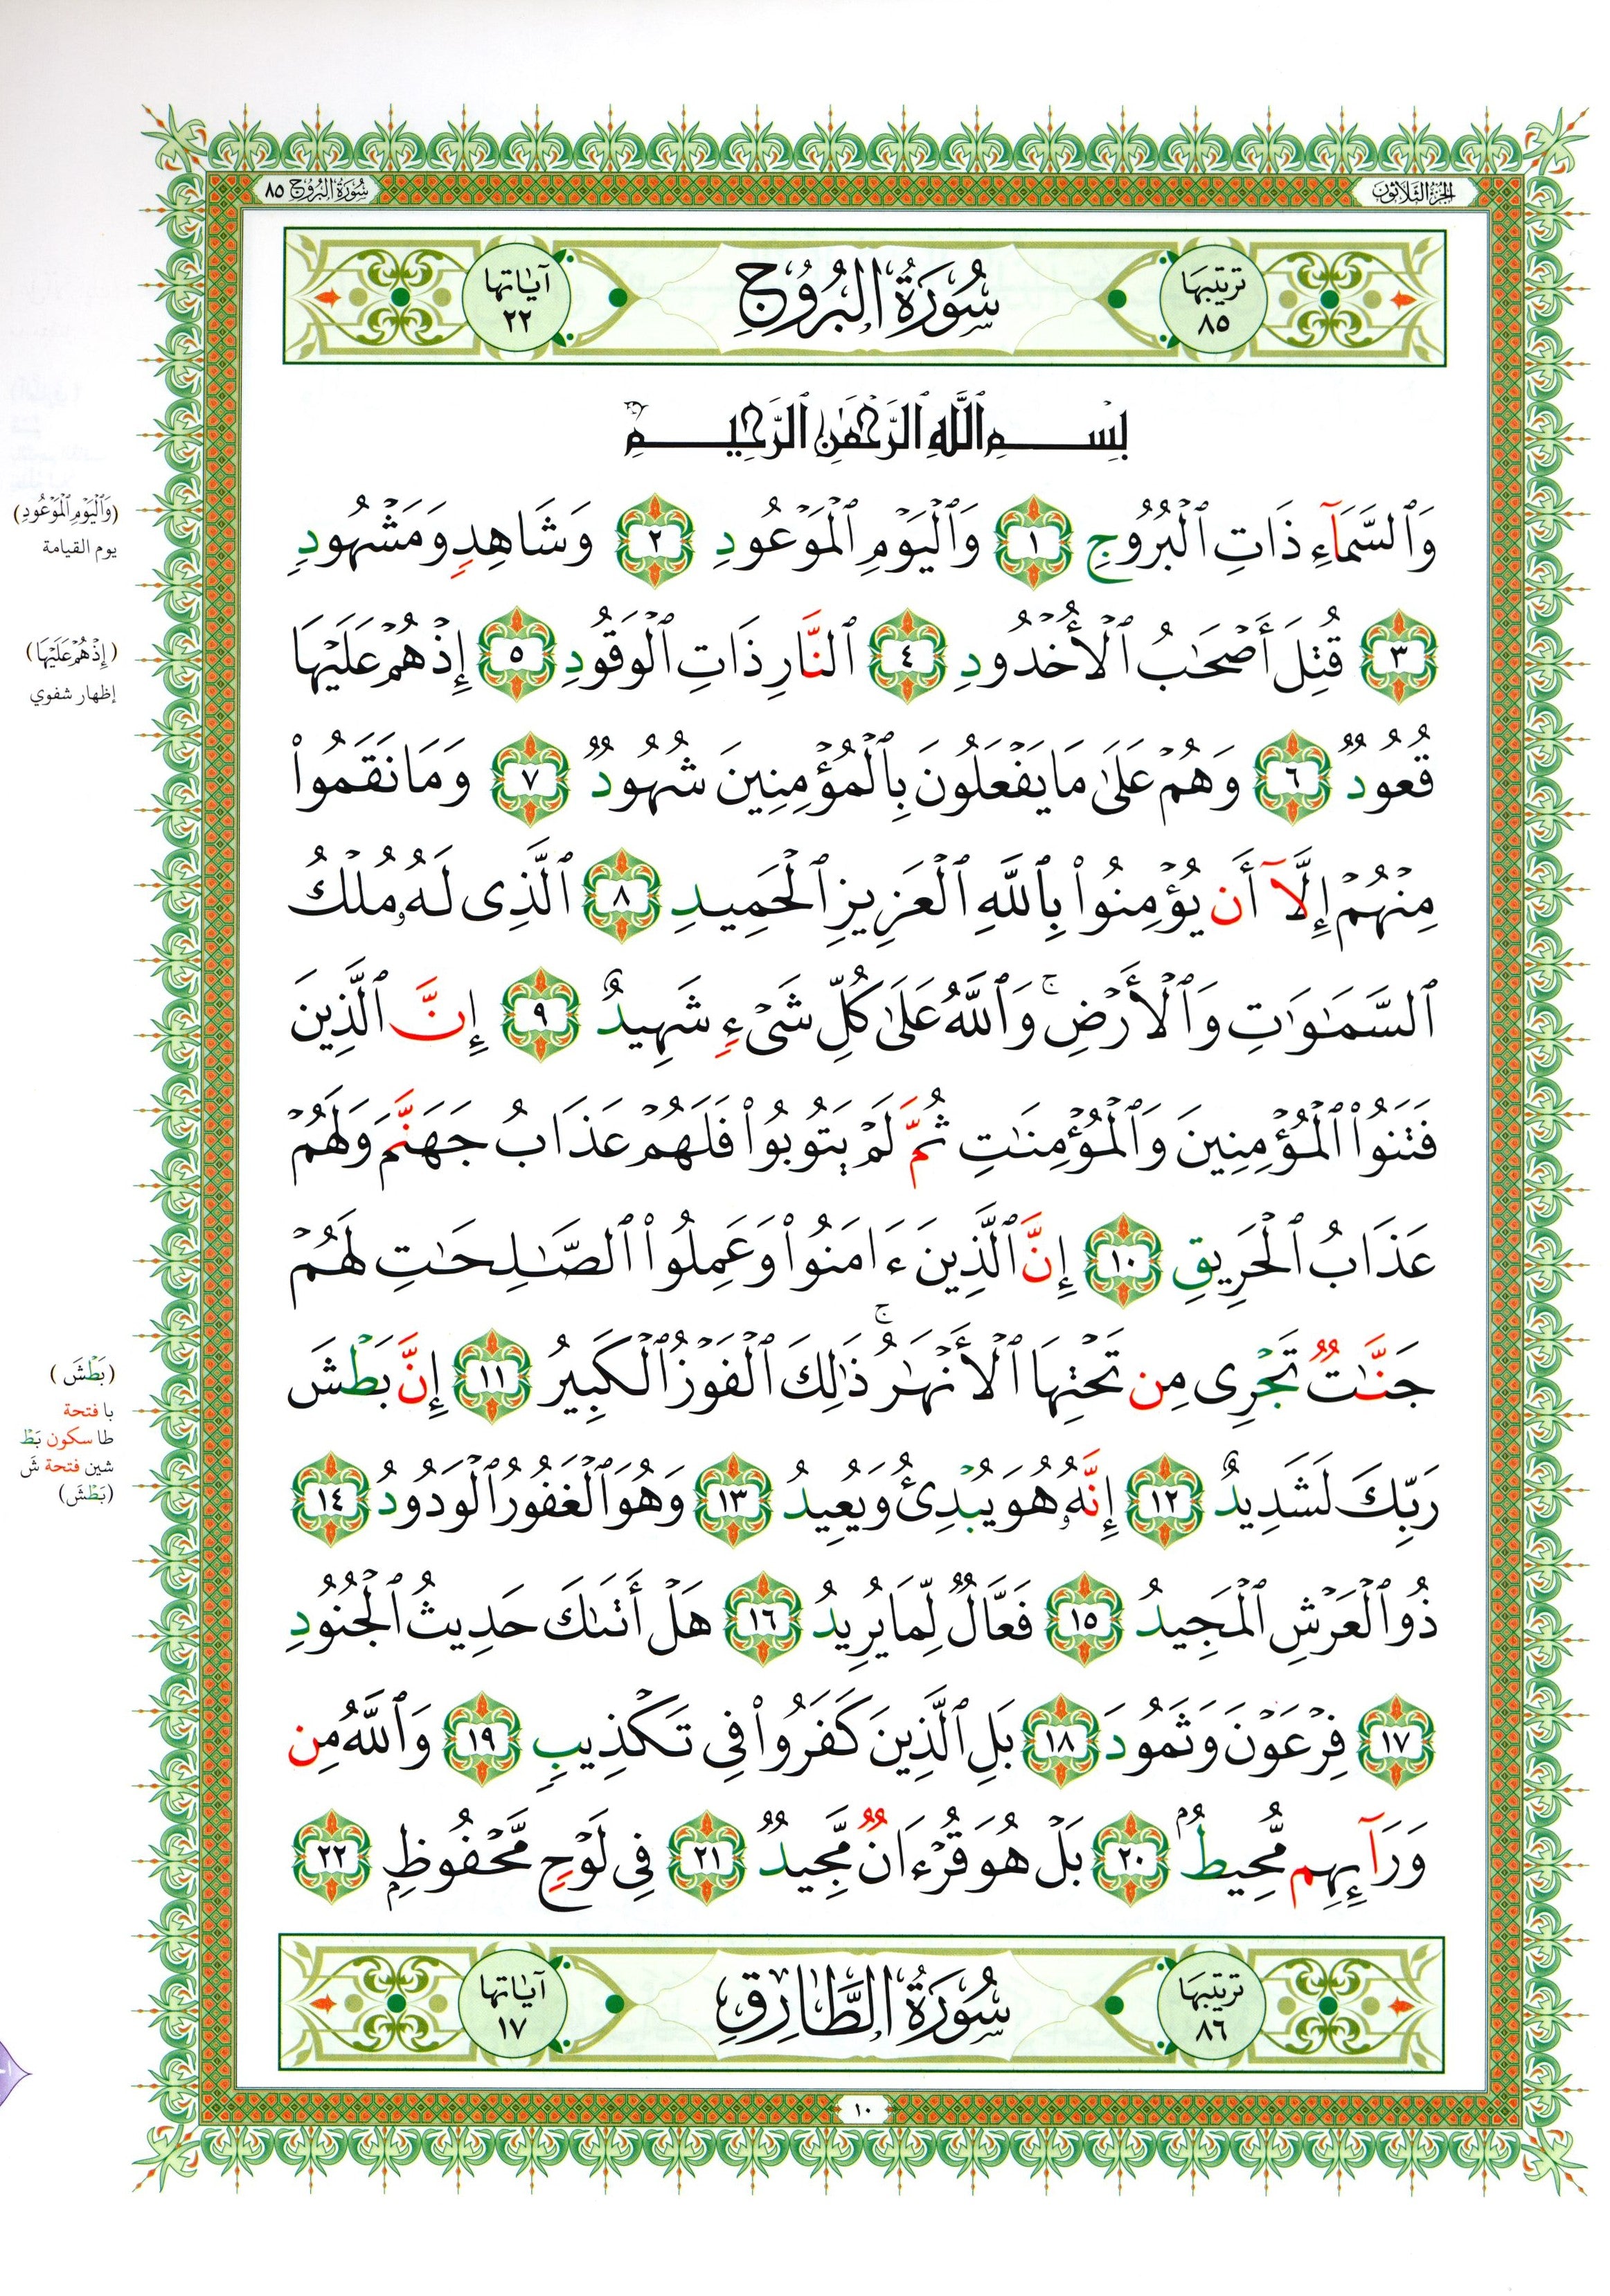 الجزء الثلاثون
سورة البروج ٨٥
ترتيبها ٨٥
سُورَةُ البُرُوجِ
آياتها ٢٢
بِسْمِ ٱللَّهِ ٱلرَّحْمَٰنِ ٱلرَّحِيمِ
وَٱلسَّمَآءِ ذَاتِ ٱلْبُرُوجِ ١ وَٱلْيَوْمِ ٱلْمَوْعُودِ ٢ وَشَاهِدٍ وَمَشْهُودٍ
٣ قُتِلَ أَصْحَٰبُ ٱلْأُخْدُودِ ٤ ٱلنَّارِ ذَاتِ ٱلْوَقُودِ ٥ إِذْ هُمْ عَلَيْهَا
قُعُودٌ ٦ وَهُمْ عَلَىٰ مَا يَفْعَلُونَ بِٱلْمُؤْمِنِينَ شُهُودٌ ٧ وَمَا نَقَمُوا۟
مِنْهُمْ إِلَّآ أَن يُؤْمِنُوا۟ بِٱللَّهِ ٱلْعَزِيزِ ٱلْحَمِيدِ ٨ ٱلَّذِى لَهُۥ مُلْكُ
ٱلسَّمَٰوَٰتِ وَٱلْأَرْضِ ۚ وَٱللَّهُ عَلَىٰ كُلِّ شَىْءٍ شَهِيدٌ ٩ إِنَّ ٱلَّذِينَ
فَتَنُوا۟ ٱلْمُؤْمِنِينَ وَٱلْمُؤْمِنَٰتِ ثُمَّ لَمْ يَتُوبُوا۟ فَلَهُمْ عَذَابُ جَهَنَّمَ وَلَهُمْ
عَذَابُ ٱلْحَرِيقِ ١٠ إِنَّ ٱلَّذِينَ ءَامَنُوا۟ وَعَمِلُوا۟ ٱلصَّٰلِحَٰتِ لَهُمْ
جَنَّٰتٌ تَجْرِى مِن تَحْتِهَا ٱلْأَنْهَٰرُ ۚ ذَٰلِكَ ٱلْفَوْزُ ٱلْكَبِيرُ ١١ إِنَّ بَطْشَ
رَبِّكَ لَشَدِيدٌ ١٢ إِنَّهُۥ هُوَ يُبْدِئُ وَيُعِيدُ ١٣ وَهُوَ ٱلْغَفُورُ ٱلْوَدُودُ ١٤
ذُو ٱلْعَرْشِ ٱلْمَجِيدُ ١٥ فَعَّالٌ لِّمَا يُرِيدُ ١٦ هَلْ أَتَىٰكَ حَدِيثُ ٱلْجُنُودِ
١٧ فِرْعَوْنَ وَثَمُودَ ١٨ بَلِ ٱلَّذِينَ كَفَرُوا۟ فِى تَكْذِيبٍ ١٩ وَٱللَّهُ مِن
وَرَآئِهِم مُّحِيطٌۢ ٢٠ بَلْ هُوَ قُرْءَانٌ مَّجِيدٌ ٢١ فِى لَوْحٍ مَّحْفُوظٍ ٢٢
ترتيبها ٨٦
سُورَةُ الطَّارِقِ
آياتها ١٧
١٠
(وَٱلْيَوْمِ ٱلْمَوْعُودِ)
يوم القيامة
(إِذْ هُمْ عَلَيْهَا)
إظهار شفوي
(بَطْشَ)
با فتحة
طا سكون بَطْ
شين فتحة شَ
(بَطْشَ)